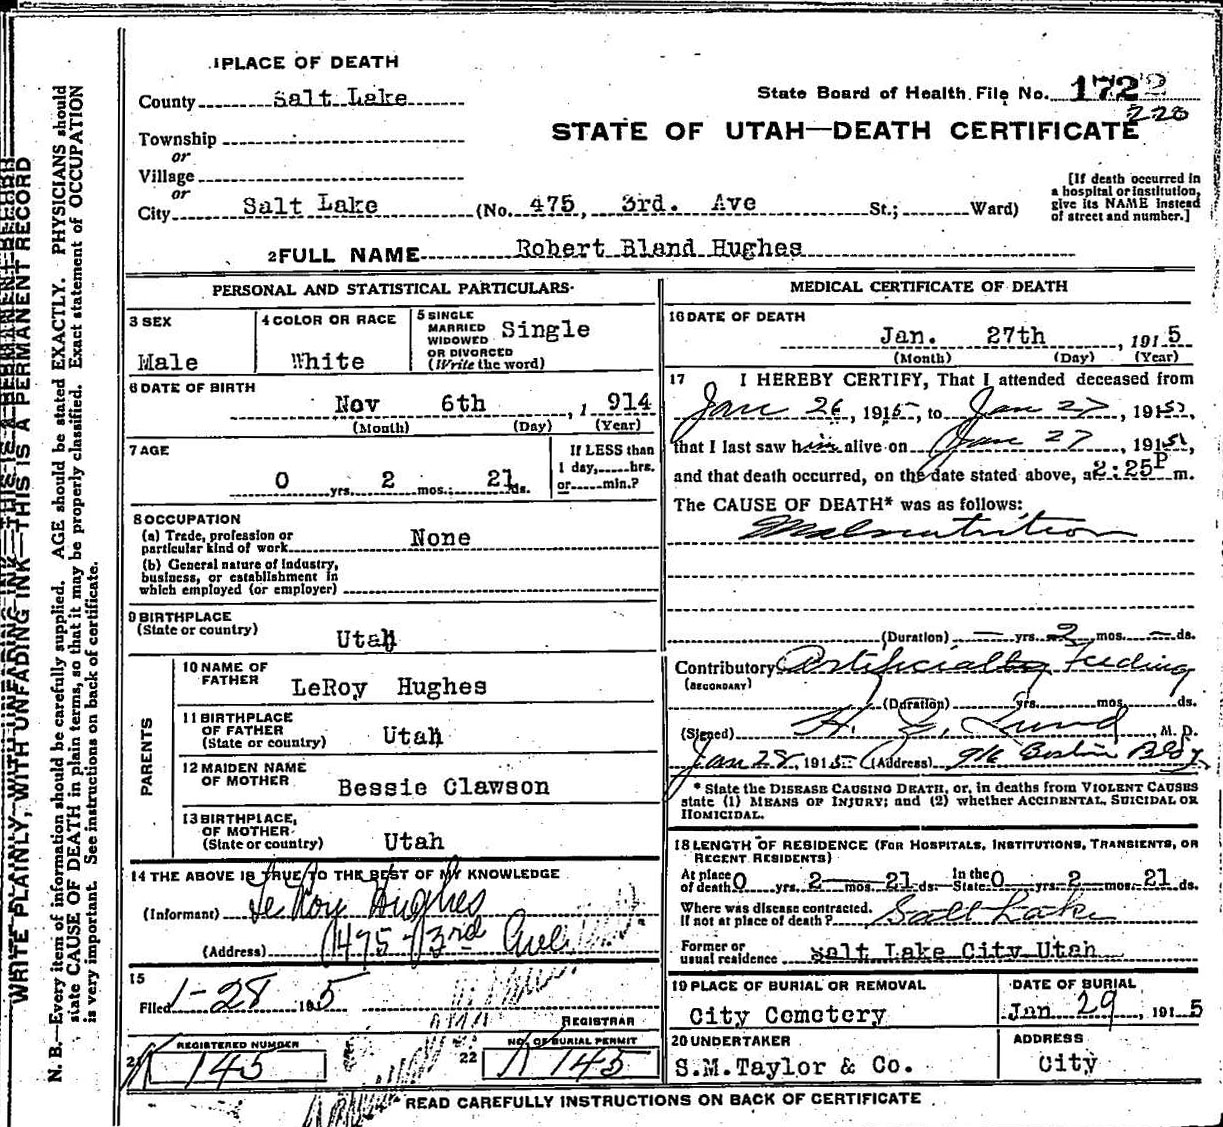 1 PLACE OF DEATH
County Salt Lake
State Board of Health File No. 1722
228
Township
or
STATE OF UTAH—DEATH CERTIFICATE
Village
or
City Salt Lake (No. 475, 3rd. Ave St.; Ward)
[If death occurred in
a hospital or institution,
give its NAME instead
of street and number.]
2 FULL NAME Robert Bland Hughes
PERSONAL AND STATISTICAL PARTICULARS
3 SEX
Male
4 COLOR OR RACE
White
5 SINGLE
MARRIED
WIDOWED
OR DIVORCED
(Write the word)
Single
6 DATE OF BIRTH
Nov 6th, 1 914
(Month) (Day) (Year)
7 AGE
0 yrs. 2 mos. 21 ds.
If LESS than
1 day, hrs.
or min.?
8 OCCUPATION
(a) Trade, profession or
particular kind of work None
(b) General nature of industry,
business, or establishment in
which employed (or employer)
9 BIRTHPLACE
(State or country) Utah
PARENTS
10 NAME OF
FATHER LeRoy Hughes
11 BIRTHPLACE
OF FATHER
(State or country) Utah
12 MAIDEN NAME
OF MOTHER Bessie Clawson
13 BIRTHPLACE,
OF MOTHER
(State or country) Utah
14 THE ABOVE IS TRUE TO THE BEST OF MY KNOWLEDGE
(Informant) Le Roy Hughes
(Address) 475 - 3rd Ave
15
Filed 1-28 1915
REGISTRAR
21 REGISTERED NUMBER
145
22 NO. OF BURIAL PERMIT
145
MEDICAL CERTIFICATE OF DEATH
16 DATE OF DEATH
Jan. 27th, 191 5
(Month) (Day) (Year)
17 I HEREBY CERTIFY, That I attended deceased from
Jan 26, 1915, to Jan 27, 1915,
that I last saw him alive on Jan 27, 1915,
and that death occurred, on the date stated above, at 2:25 P m.
The CAUSE OF DEATH* was as follows:
Malnutrition
(Duration) — yrs. 2 mos. — ds.
Contributory Artificially Feeding
(SECONDARY)
(Duration) yrs. mos. ds.
(Signed) H. Lund, M. D.
Jan 28, 1915 (Address) 916 Boston Bldg
* State the DISEASE CAUSING DEATH, or, in deaths from VIOLENT CAUSES
state (1) MEANS OF INJURY; and (2) whether ACCIDENTAL, SUICIDAL OR
HOMICIDAL.
18 LENGTH OF RESIDENCE (FOR HOSPITALS, INSTITUTIONS, TRANSIENTS, OR
RECENT RESIDENTS)
At place
of death 0 yrs. 2 mos. 21 ds. In the State 0 yrs. 2 mos. 21 ds.
Where was disease contracted,
If not at place of death? Salt Lake
Former or
usual residence Salt Lake City Utah
19 PLACE OF BURIAL OR REMOVAL
City Cemetery
DATE OF BURIAL
Jan 29, 191 5
20 UNDERTAKER
S.M.Taylor & Co.
ADDRESS
City
READ CAREFULLY INSTRUCTIONS ON BACK OF CERTIFICATE
WRITE PLAINLY, WITH UNFADING INK—THIS IS A PERMANENT RECORD
N. B.—Every item of information should be carefully supplied. AGE should be stated EXACTLY. PHYSICIANS should
state CAUSE OF DEATH in plain terms, so that it may be properly classified. Exact statement of OCCUPATION
is very important. See instructions on back of certificate.